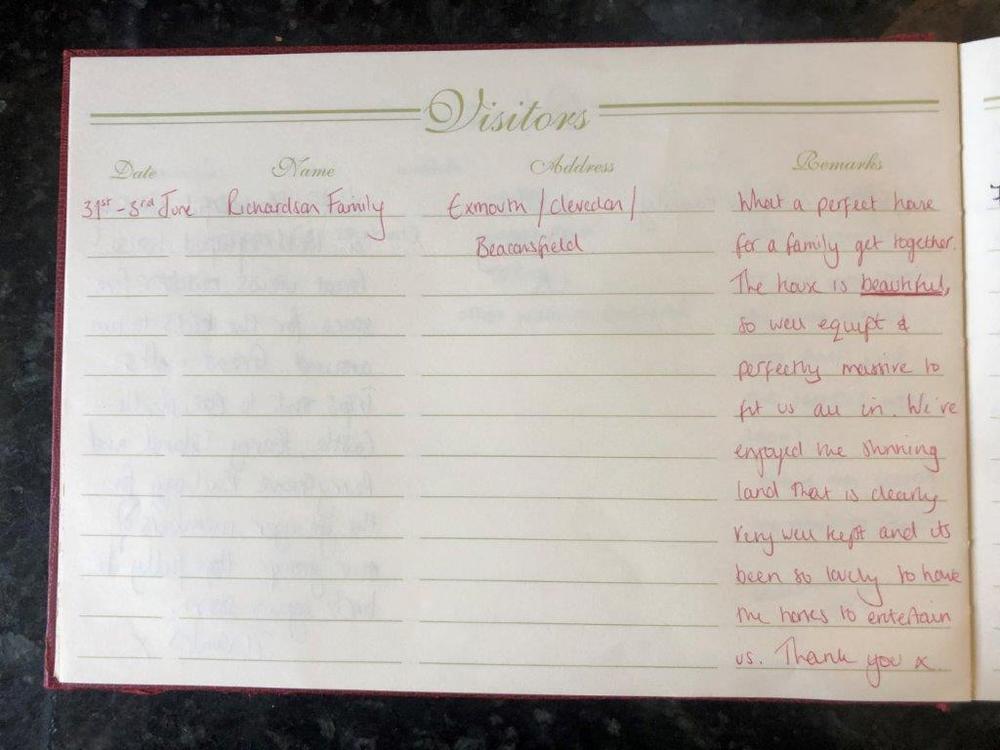 Visitors
Date Name Address Remarks
31st - 3rd June Richardson Family Exmouth / Clevedon / What a perfect house
Beaconsfield for a family get together.
The house is beautiful,
so well equipt &
perfectly massive to
fit us all in. We've
enjoyed the stunning
land that is clearly
very well kept and its
been so lovely to have
the horses to entertain
us. Thank you x